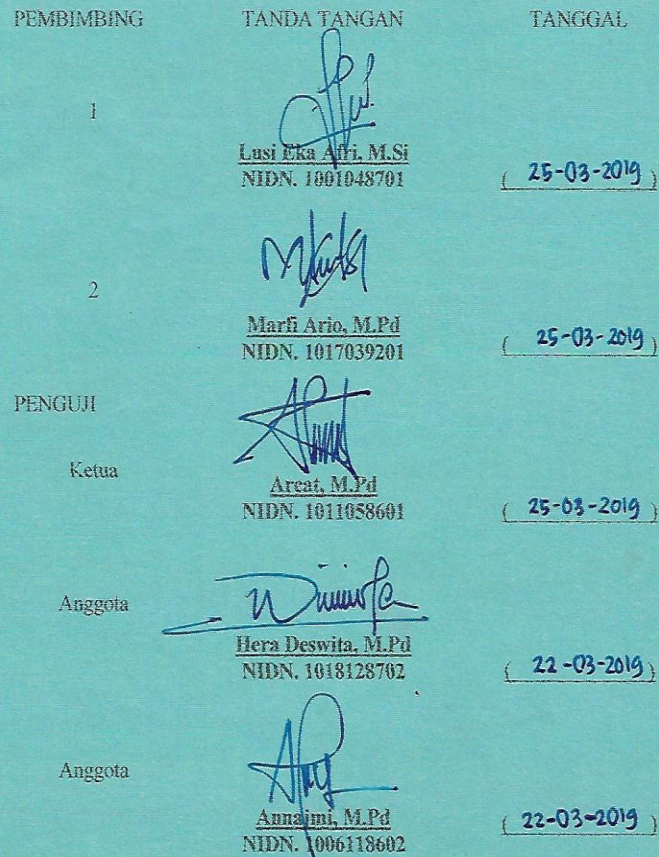 PEMBIMBING TANDA TANGAN TANGGAL
1
Lusi Eka Afri, M.Si
NIDN. 1001048701 ( 25-03-2019 )
2
Marfi Ario, M.Pd
NIDN. 1017039201 ( 25-03-2019 )
PENGUJI
Ketua
Arcat, M.Pd
NIDN. 1011058601 ( 25-03-2019 )
Anggota
Hera Deswita, M.Pd
NIDN. 1018128702 ( 22-03-2019 )
Anggota
Annajmi, M.Pd ( 22-03-2019 )
NIDN. 1006118602